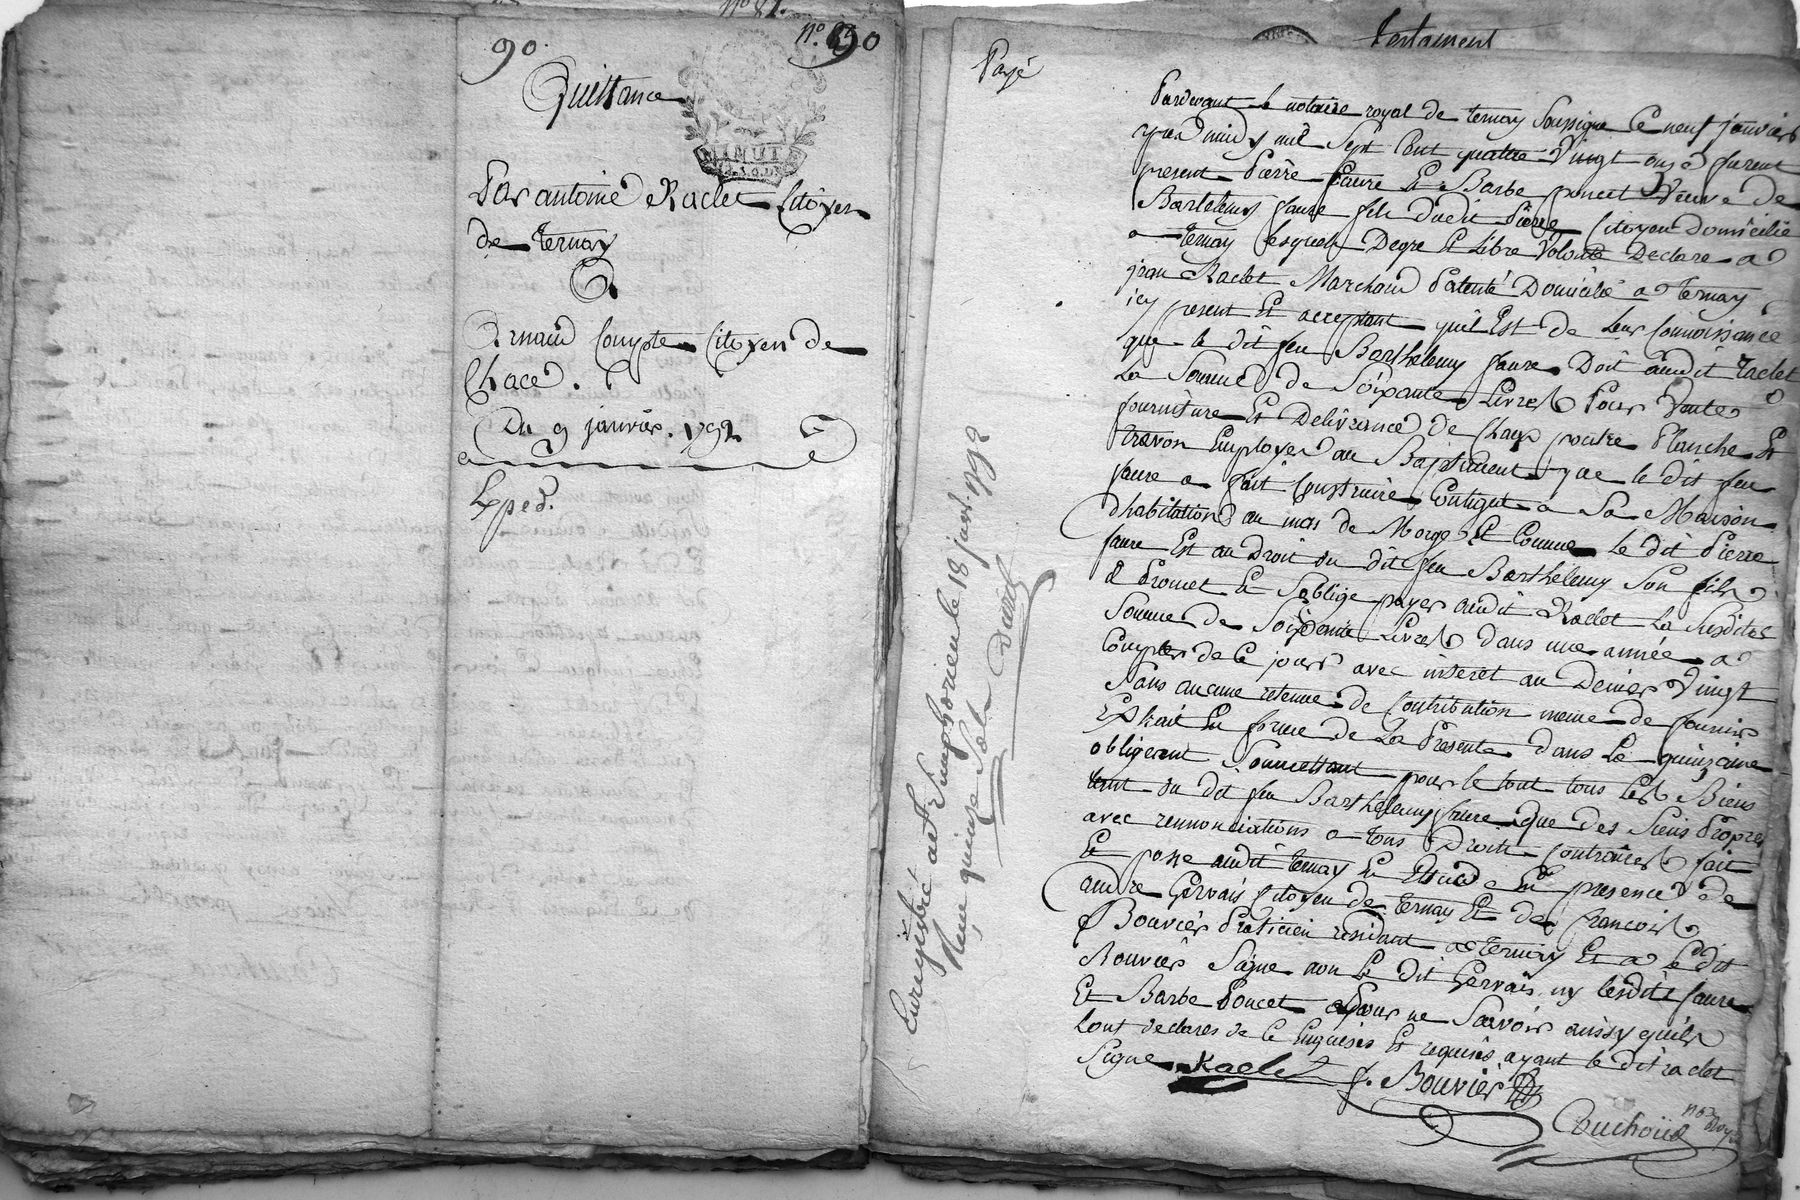 n.º 87.
90.
n.º 90
Quittance
MINUTE
Par antoine Raclet Citoyen
de Ternay
A
Arnaud Compte Citoyen de
Chace.
Du 9 janvier. 1792
Exped.
testament
Payé
Pardevant le notaire royal de ternay Soussigné Ce neuf janvier
apres midy mil Sept Cent quatre Vingt onze furent
present Pierre faure Et Barbe poncet Veuve de
Bartelemy faure fils dudit Pierre Citoyen domicilié
a ternay lesquels Degre Et libre Volonté Declare a
jean Raclet Marchand Patenté Domicilié a Ternay
icy present Et acceptant quil Est de leur Connoissance
que le dit feu Barthelemy faure Doit audit raclet
La Somme de Soixante Livres Pour Vente
fourniture Et Delivrance de Chaux poutre Planche Et
travon Employer au Baptiment que le dit feu
faure a fait Construire Contigut a Sa Maison
dhabitation au mas de Morge Et Comme le dit Pierre
faure Est au Droit du dit feu Barthelemy Son fils
Promet Et Soblige payer audit Raclet La Susdite
Somme de Soixante Livres dans une année a
Compter de Ce jour avec interet au Denier Vingt
Sans aucune retenue de Contribution meme de fournir
Extrait En forme de La Presente dans La quinzaine
obligeant Soumettant pour le tout tous Les Biens
tant du dit feu Barthelemy faure que des Siens Propres
avec rennonciations a tous Droits Contraires fait
Et passe audit ternay En Etude En presence de
andre Gervais Citoyen de ternay Et de françois
Bouvier Praticien residant a Ternay Et a Le dit
Bouvier Signe non Le dit Gervais ny lesdits faure
Et Barbe Poncet Pour ne Savoir aussy quils
lont declares de Ce Enquis Et requis ayant le dit raclet
Signe Raclet
f. Bouvier
Couchoud
not Roy
Enregistré a St Simphorien le 18 janv. 1792
Reçu quinze Sols